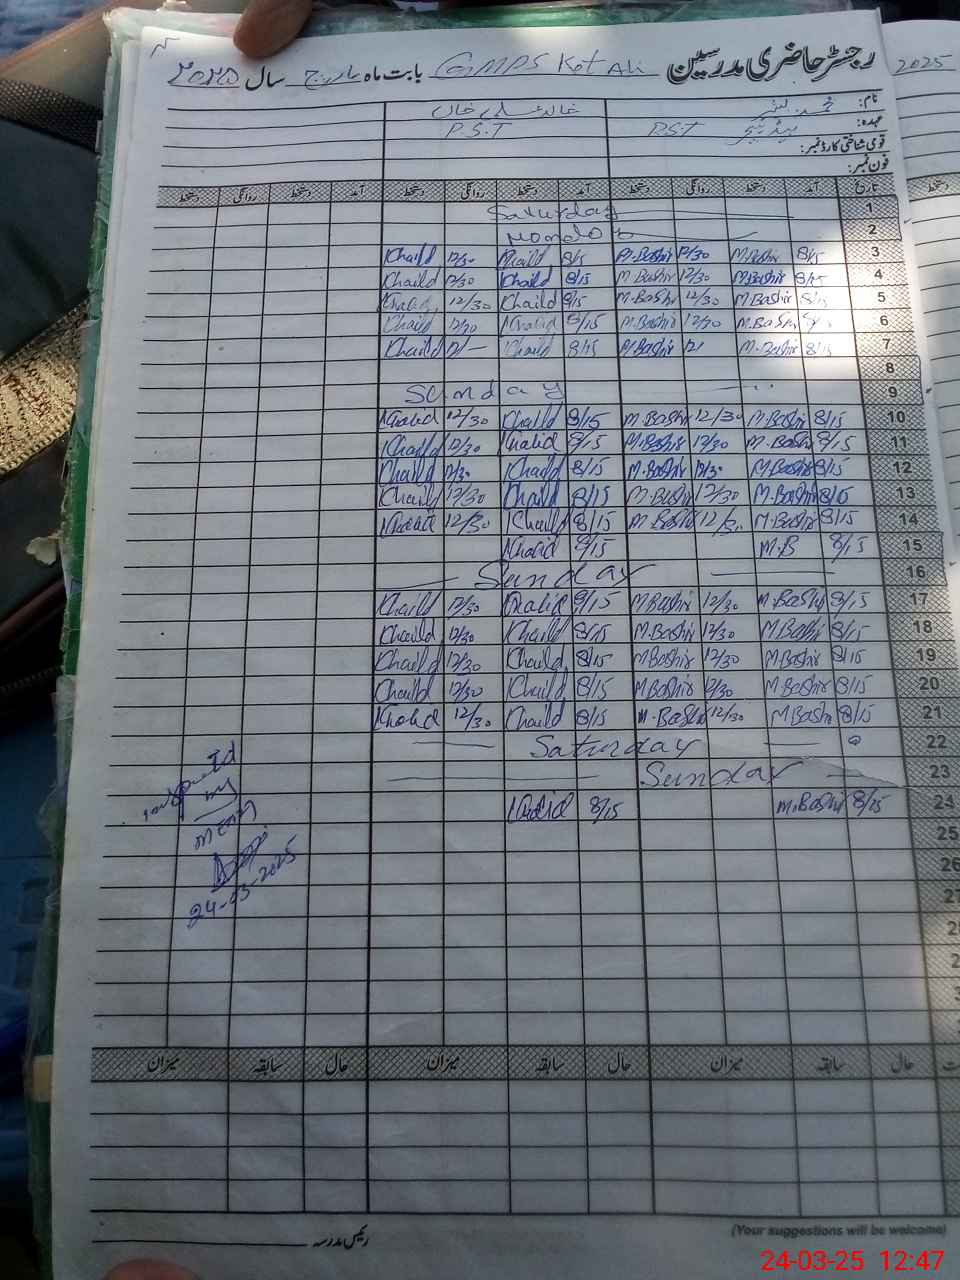 رجسٹر حاضری مدرسین GMPS Kot Ali بابت ماہ مارچ سال ۲۰۲۵
2025
نام: محمد بشیر خالد علی خان
عہدہ: ہیڈ ٹیچر P.S.T P.S.T
قومی شناختی کارڈ نمبر:
فون نمبر:
تاریخ آمد دستخط روانگی دستخط آمد دستخط روانگی دستخط آمد دستخط روانگی دستخط
دستخط
1 Saturday
2
3 8/15 M.Bashir 12/30 M.Bashir 8/15 Khaild 12/30 Khaild
4 8/15 M.Bashir 12/30 M.Bashir 8/15 Khaild 12/30 Khaild
5 8/15 M.Bashir 12/30 M.Bashir 8/15 Khaild 12/30 Khalid
6 8/15 M.Bashir 12/30 M.Bashir 8/15 Khalid 12/30 Khaild
7 8/15 M.Bashir 12/ M.Bashir 8/15 Khaild 12/— Khaild
8
9 Sunday
10 8/15 M.Bashir 12/30 M.Bashir 8/15 Khaild 12/30 Khalid
11 8/15 M.Bashir 12/30 M.Bashir 8/15 Khalid 12/30 Khaild
12 8/15 M.Bashir 12/30 M.Bashir 8/15 Khaild 12/30 Khaild
13 8/15 M.Bashir 12/30 M.Bashir 8/15 Khaild 12/30 Khaild
14 8/15 M.Bashir 12/30 M.Bashir 8/15 Khaild 12/30 Khalid
15 8/15 M.B 8/15 Khalid
16 Sunday
17 8/15 M.Bashir 12/30 M.Bashir 8/15 Khalid 12/30 Khaild
18 8/15 M.Bashir 12/30 M.Bashir 8/15 Khaild 12/30 Khaild
19 8/15 M.Bashir 12/30 M.Bashir 8/15 Khaild 12/30 Khaild
20 8/15 M.Bashir 12/30 M.Bashir 8/15 Khaild 12/30 Khaild
21 8/15 M.Bashir 12/30 M.Bashir 8/15 Khaild 12/30 Khalid
22 Saturday
23 Sunday
24 8/15 M.Bashir 8/15 Khalid
25
26
27
by
MEAS
24-03-2025
حال سابقہ میزان حال سابقہ میزان حال سابقہ میزان
رئیس مدرسہ
(Your suggestions will be welcome)
24-03-25 12:47